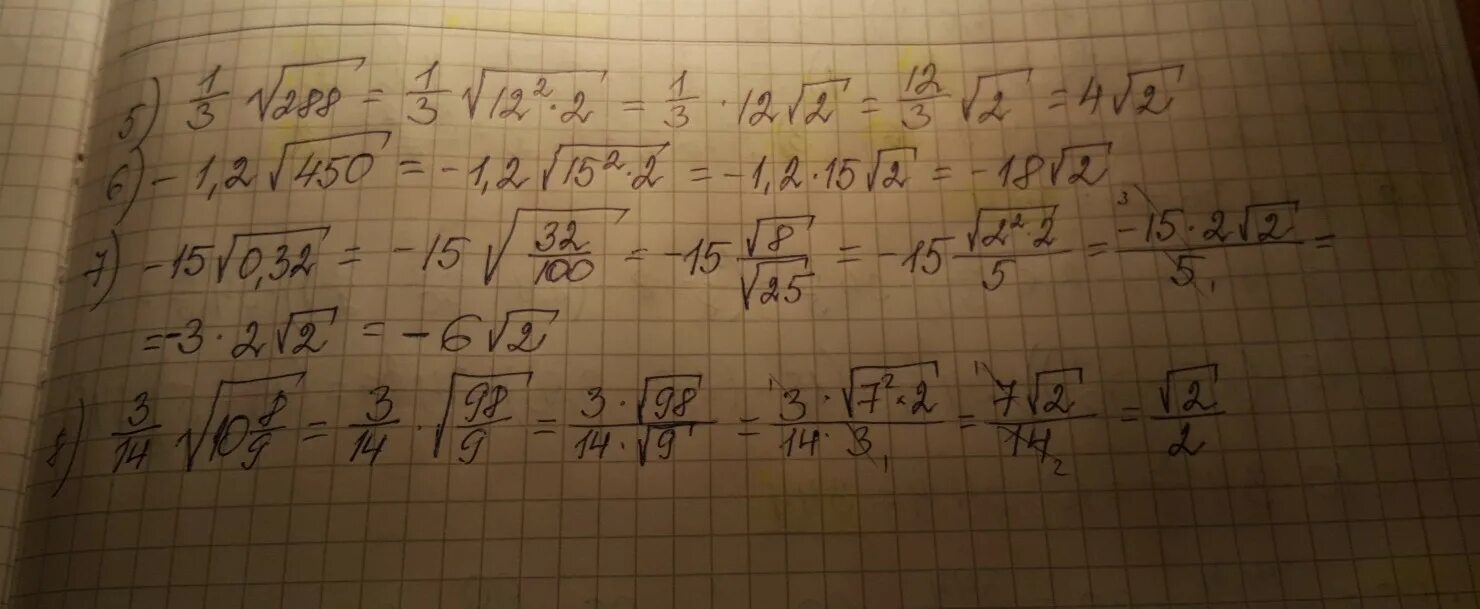 5) 1/3 √288 = 1/3 √(12² · 2) = 1/3 · 12√2 = 12/3 √2 = 4√2
6) -1,2√450 = -1,2√(15² · 2) = -1,2 · 15√2 = -18√2
7) -15√0,32 = -15√(32/100) = -15 √8/√25 = -15 √(2² · 2)/5 = (-15 · 2√2)/5 =
= -3 · 2√2 = -6√2
8) 3/14 √(10 8/9) = 3/14 · √(98/9) = (3 · √98)/(14 · √9) = (3 · √(7² × 2))/(14 · 3) = 7√2/14 = √2/2